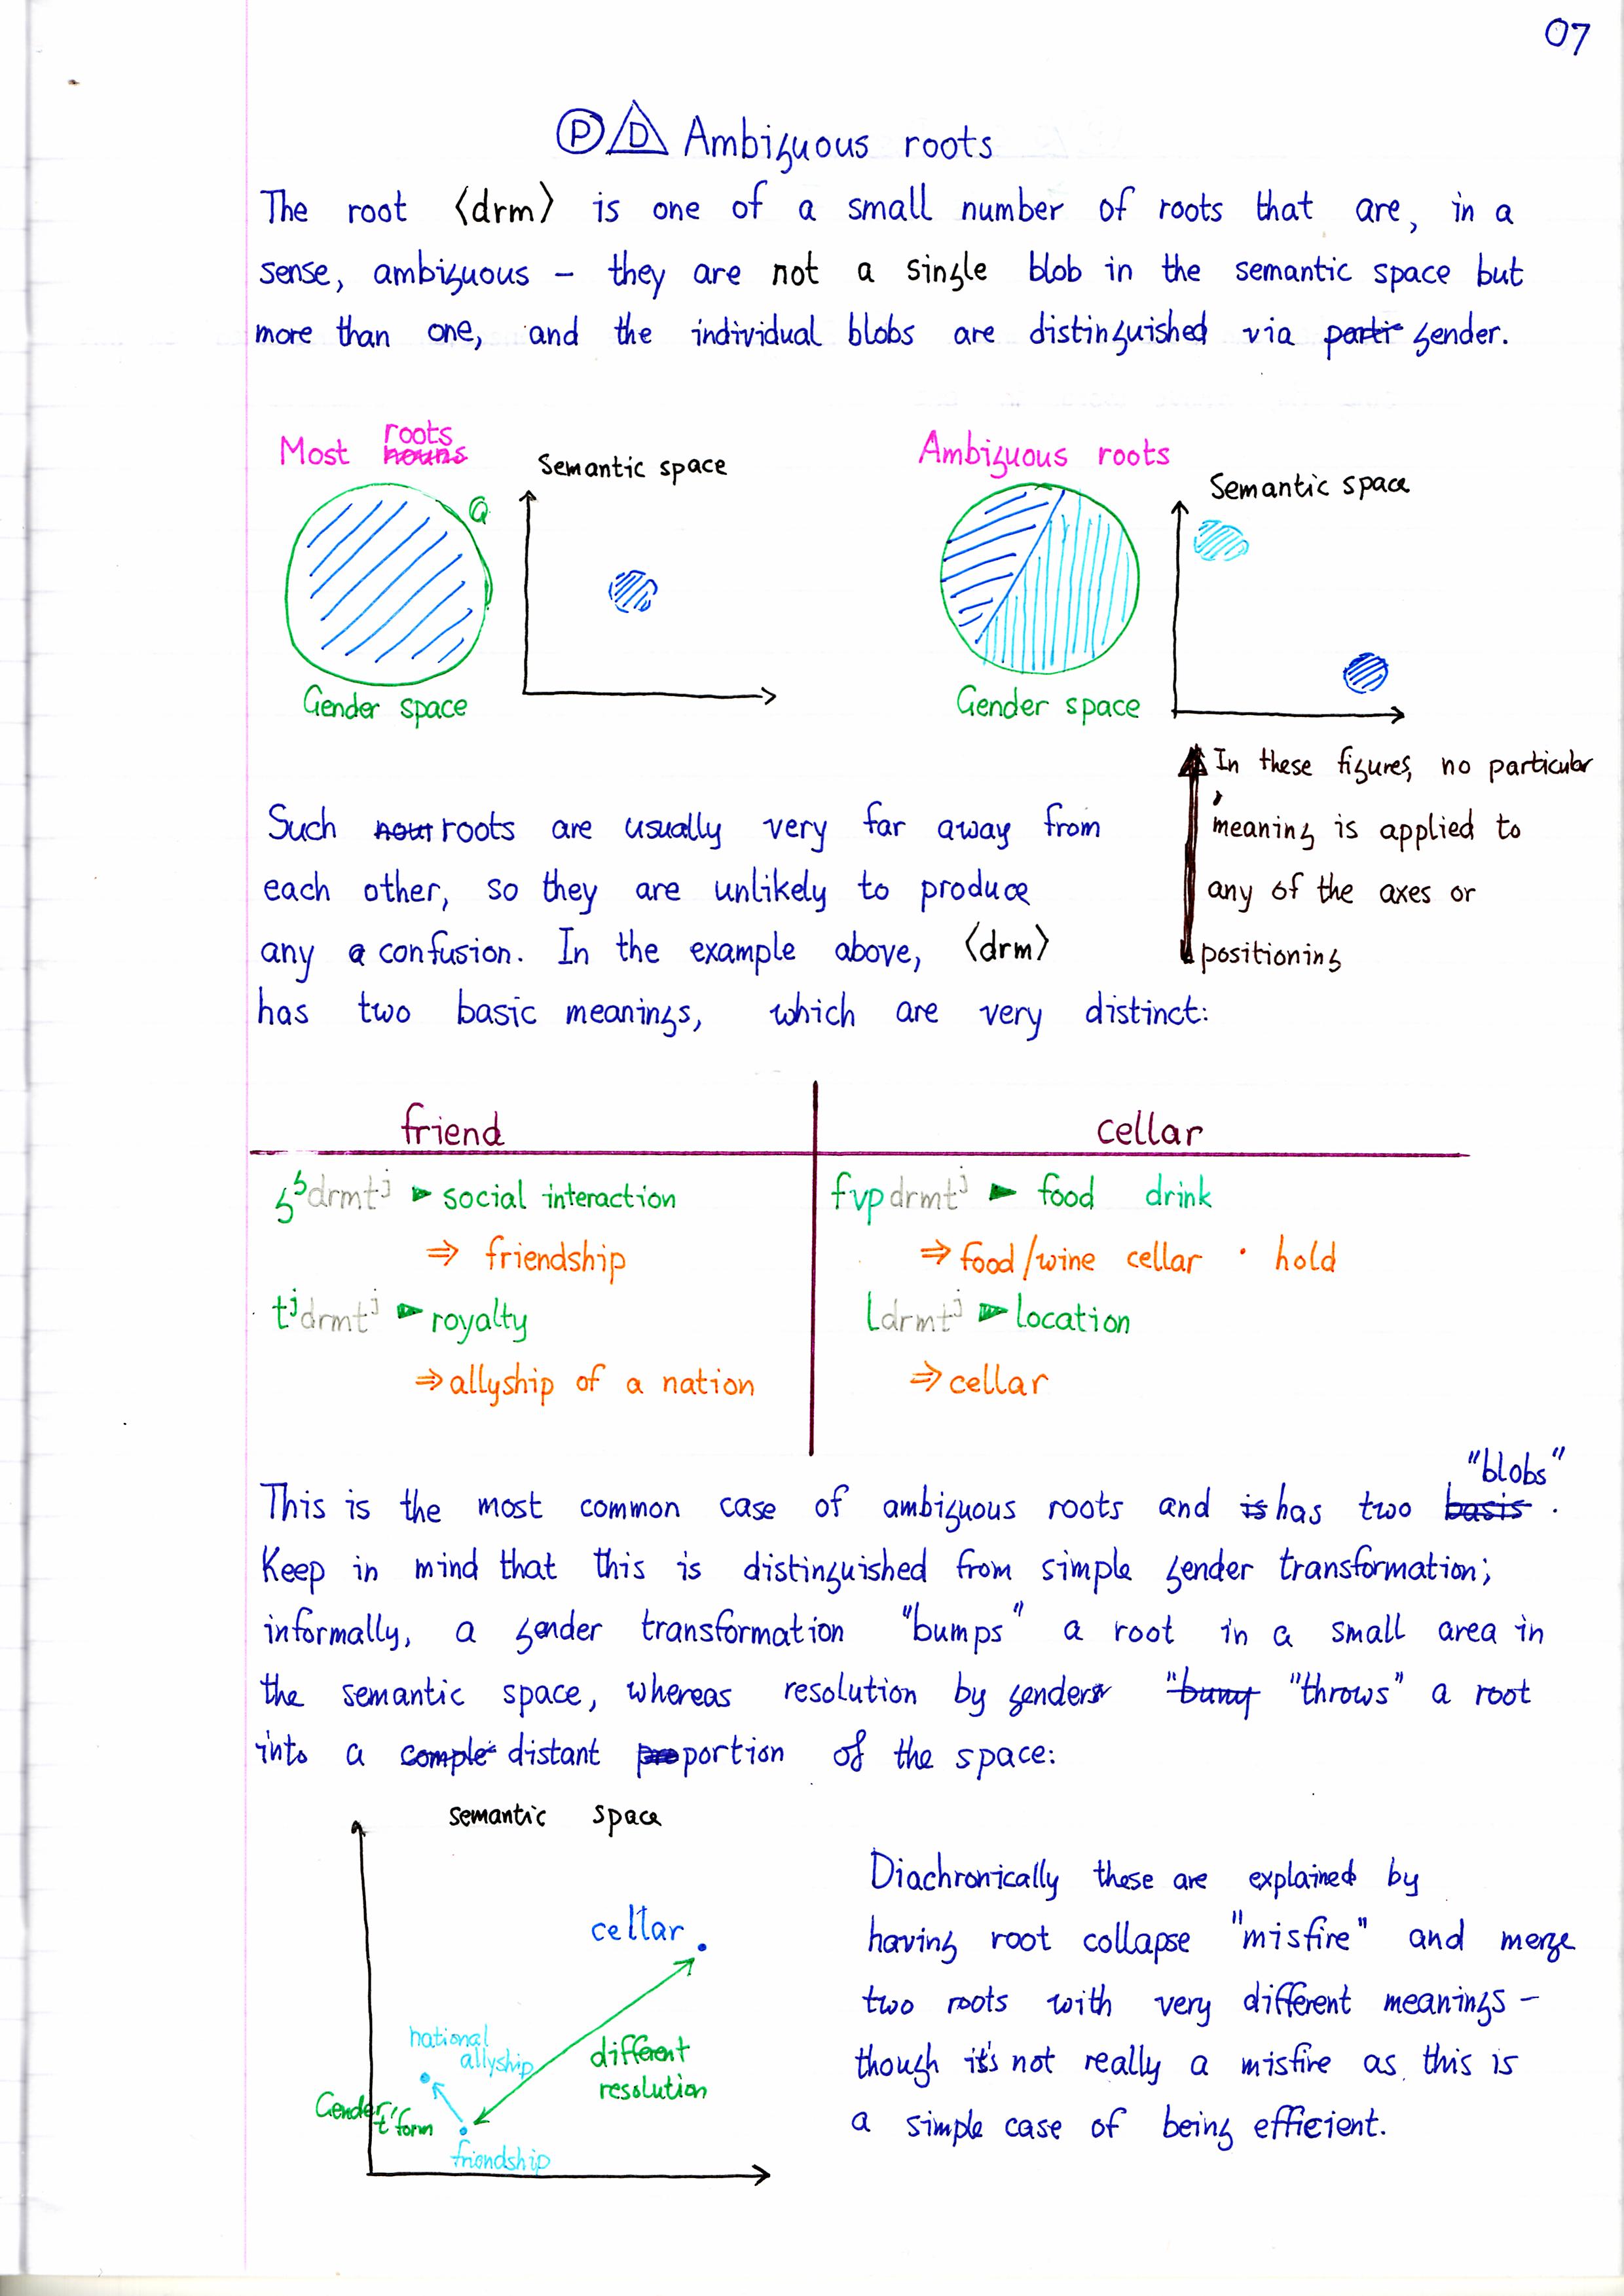 07
Ⓟ D Ambiguous roots
The root ⟨drm⟩ is one of a small number of roots that are, in a
sense, ambiguous – they are not a single blob in the semantic space but
more than one, and the individual blobs are distinguished via parti gender.
Most nouns roots
Semantic space
Gender space
Ambiguous roots
Semantic space
Gender space
In these figures, no particular
meaning is applied to
any of the axes or
positioning
Such noun roots are usually very far away from
each other, so they are unlikely to produce
any confusion. In the example above, ⟨drm⟩
has two basic meanings, which are very distinct:
friend
gᶢdrmtʲ ► social interaction
⇒ friendship
tʲdrmtʲ ► royalty
⇒ allyship of a nation
cellar
fvpdrmtʲ ► food drink
⇒ food/wine cellar · hold
ldrmtʲ ► location
⇒ cellar
This is the most common case of ambiguous roots and is has two basis "blobs".
Keep in mind that this is distinguished from simple gender transformation;
informally, a gender transformation "bumps" a root in a small area in
the semantic space, whereas resolution by gender "bump "throws" a root
into a comple distant portion of the space:
semantic space
cellar
national
allyship
different
resolution
Gender
t'form
friendship
Diachronically these are explained by
having root collapse "misfire" and merge
two roots with very different meanings –
though it's not really a misfire as this is
a simple case of being efficient.